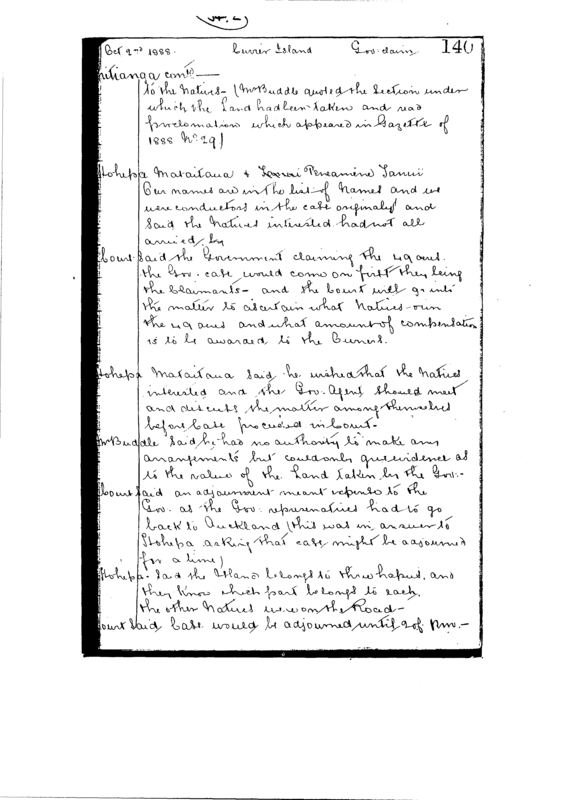 Oct 2nd 1888. Cuvier Island Gov. claim 140
contd —
to the Natives — (Mr Buddle quoted the Section under
which the Land had been taken and read
proclamation which appeared in Gazette of
1888 No. 29)
Hohepa Mataitaua &
Our names are in the list of Names and we
were conductors in the case originally and
Said the Natives interested had not all
arrived
Court Said the Government claiming the 49 acres.
the Gov. case would come on first they being
the Claimants — and the Court will go into
the matter to ascertain what Natives own
the 49 acres and what amount of compensation
is to be awarded to the Owners.
Hohepa Mataitaua Said he wished that the Natives
interested and the Gov. Agent should meet
and discuss the matter among themselves
before Case proceeded in Court —
Mr Buddle Said he had no authority to make any
arrangements but could only give evidence as
to the value of the Land taken by the Gov. —
Court Said an adjournment meant expense to the
Gov. as the Gov. representatives had to go
back to Auckland (this was in answer to
Hohepa asking that case might be adjourned
for a time)
Hohepa. Said the Island belongs to three hapus, and
they know which part belongs to each,
the other Natives were on the Road —
Court Said Case would be adjourned until 2 of P.M. —